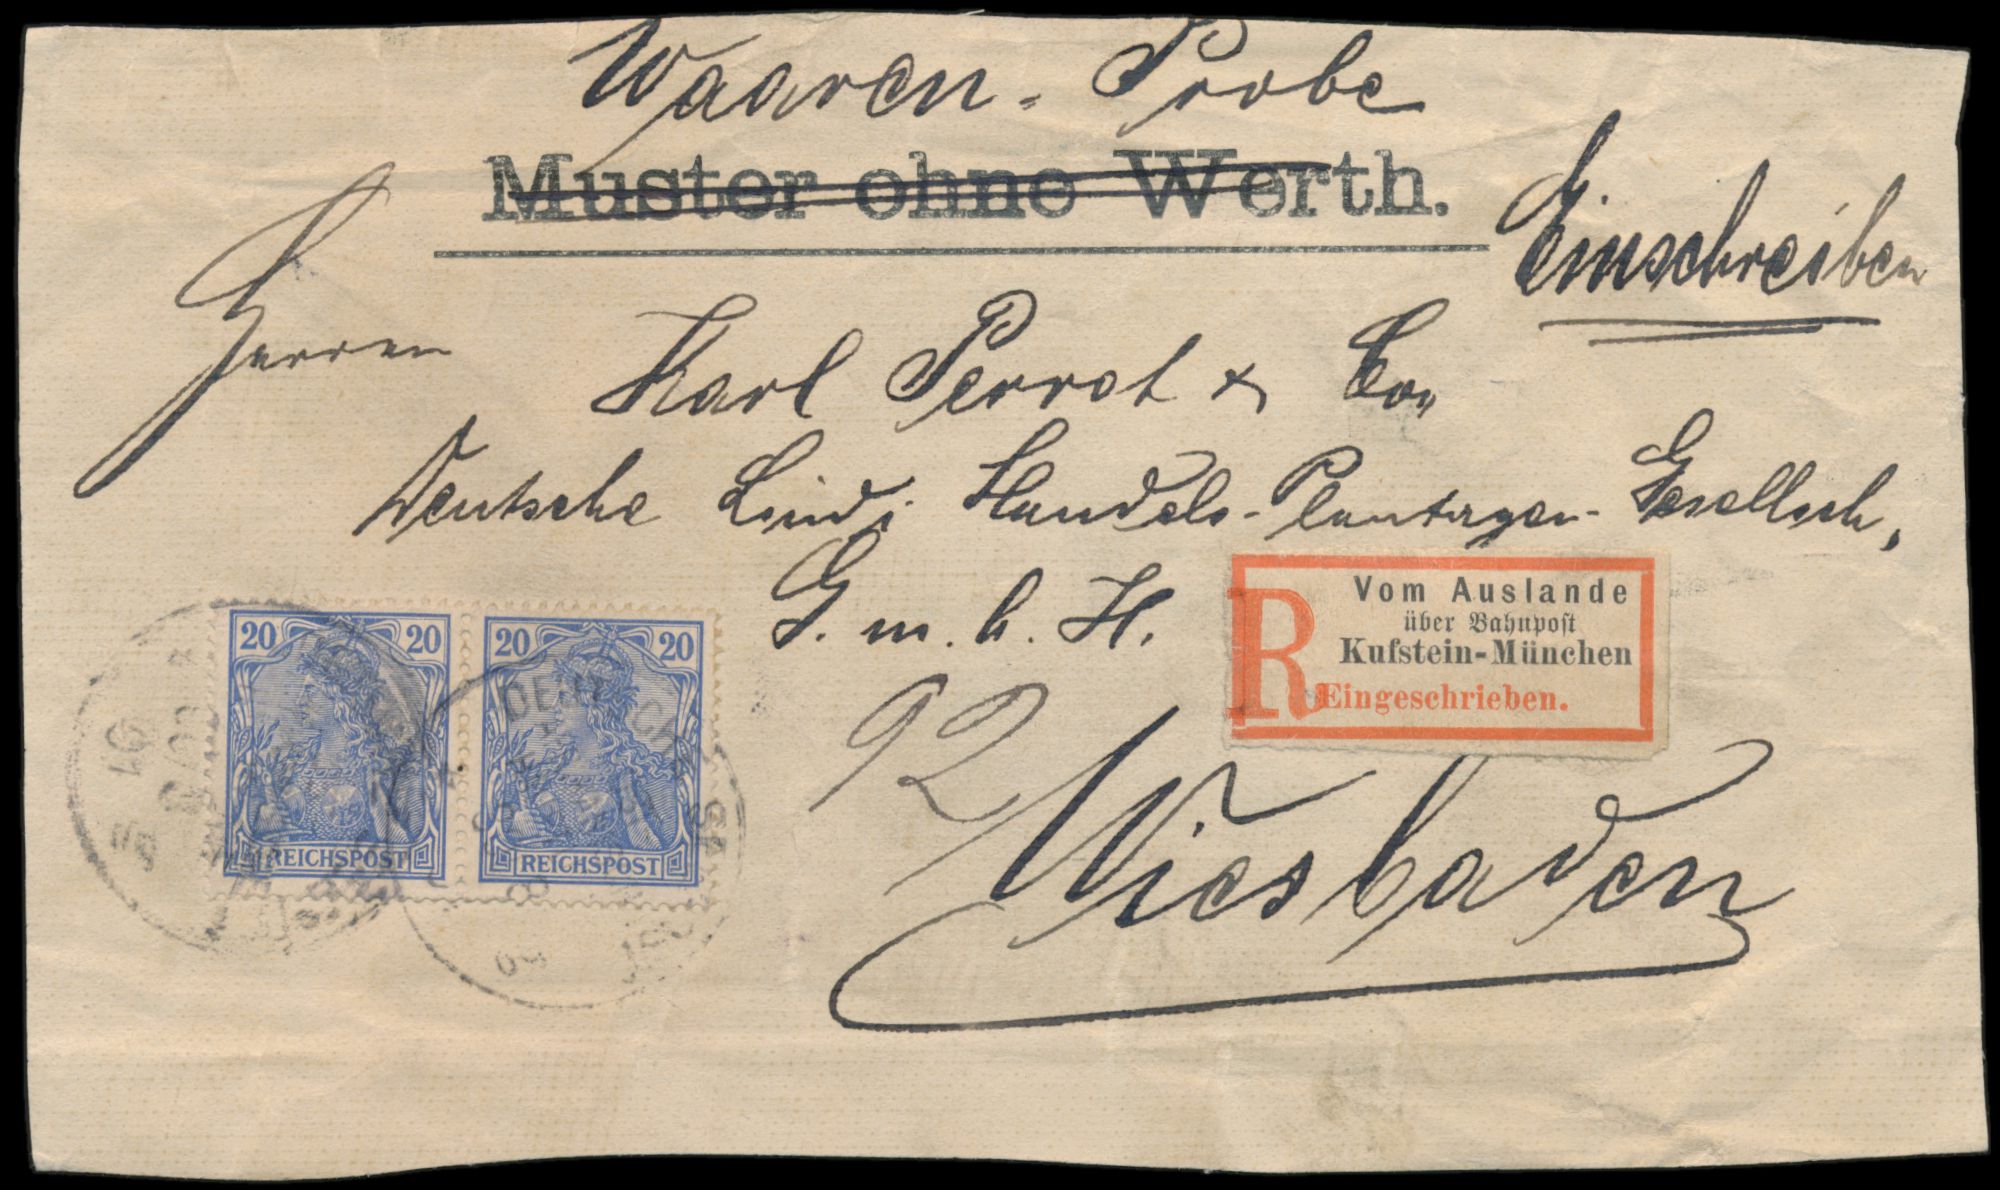 Waaren-Probe
Muster ohne Werth.
Einschreiben
Herren
Karl Perrot & Co.
Deutsche Lindi Handels-Plantagen-Gesellsch,
G. m. b. H.
R
Vom Auslande
über Bahnpost
Kufstein-München
Eingeschrieben.
92
Wiesbaden
20 20
REICHSPOST
20 20
REICHSPOST